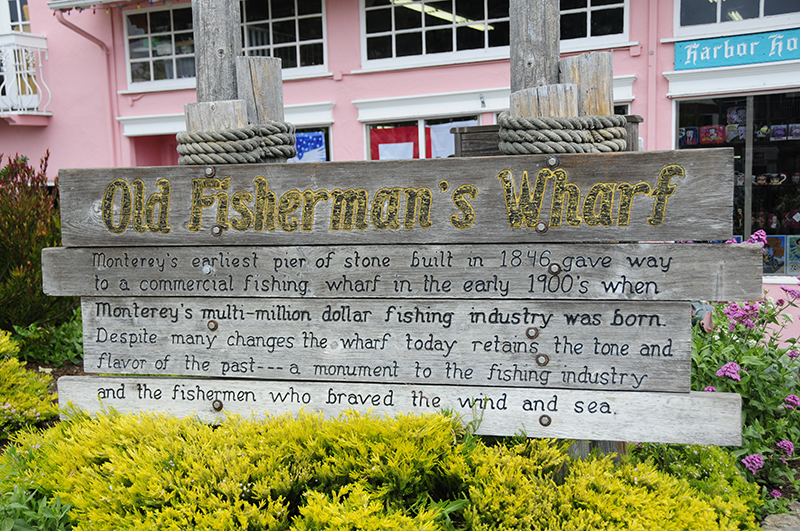 Harbor Ho
Old Fisherman's Wharf
Monterey's earliest pier of stone built in 1846 gave way
to a commercial fishing wharf in the early 1900's when
Monterey's multi-million dollar fishing industry was born.
Despite many changes the wharf today retains the tone and
flavor of the past--- a monument to the fishing industry
and the fishermen who braved the wind and sea.